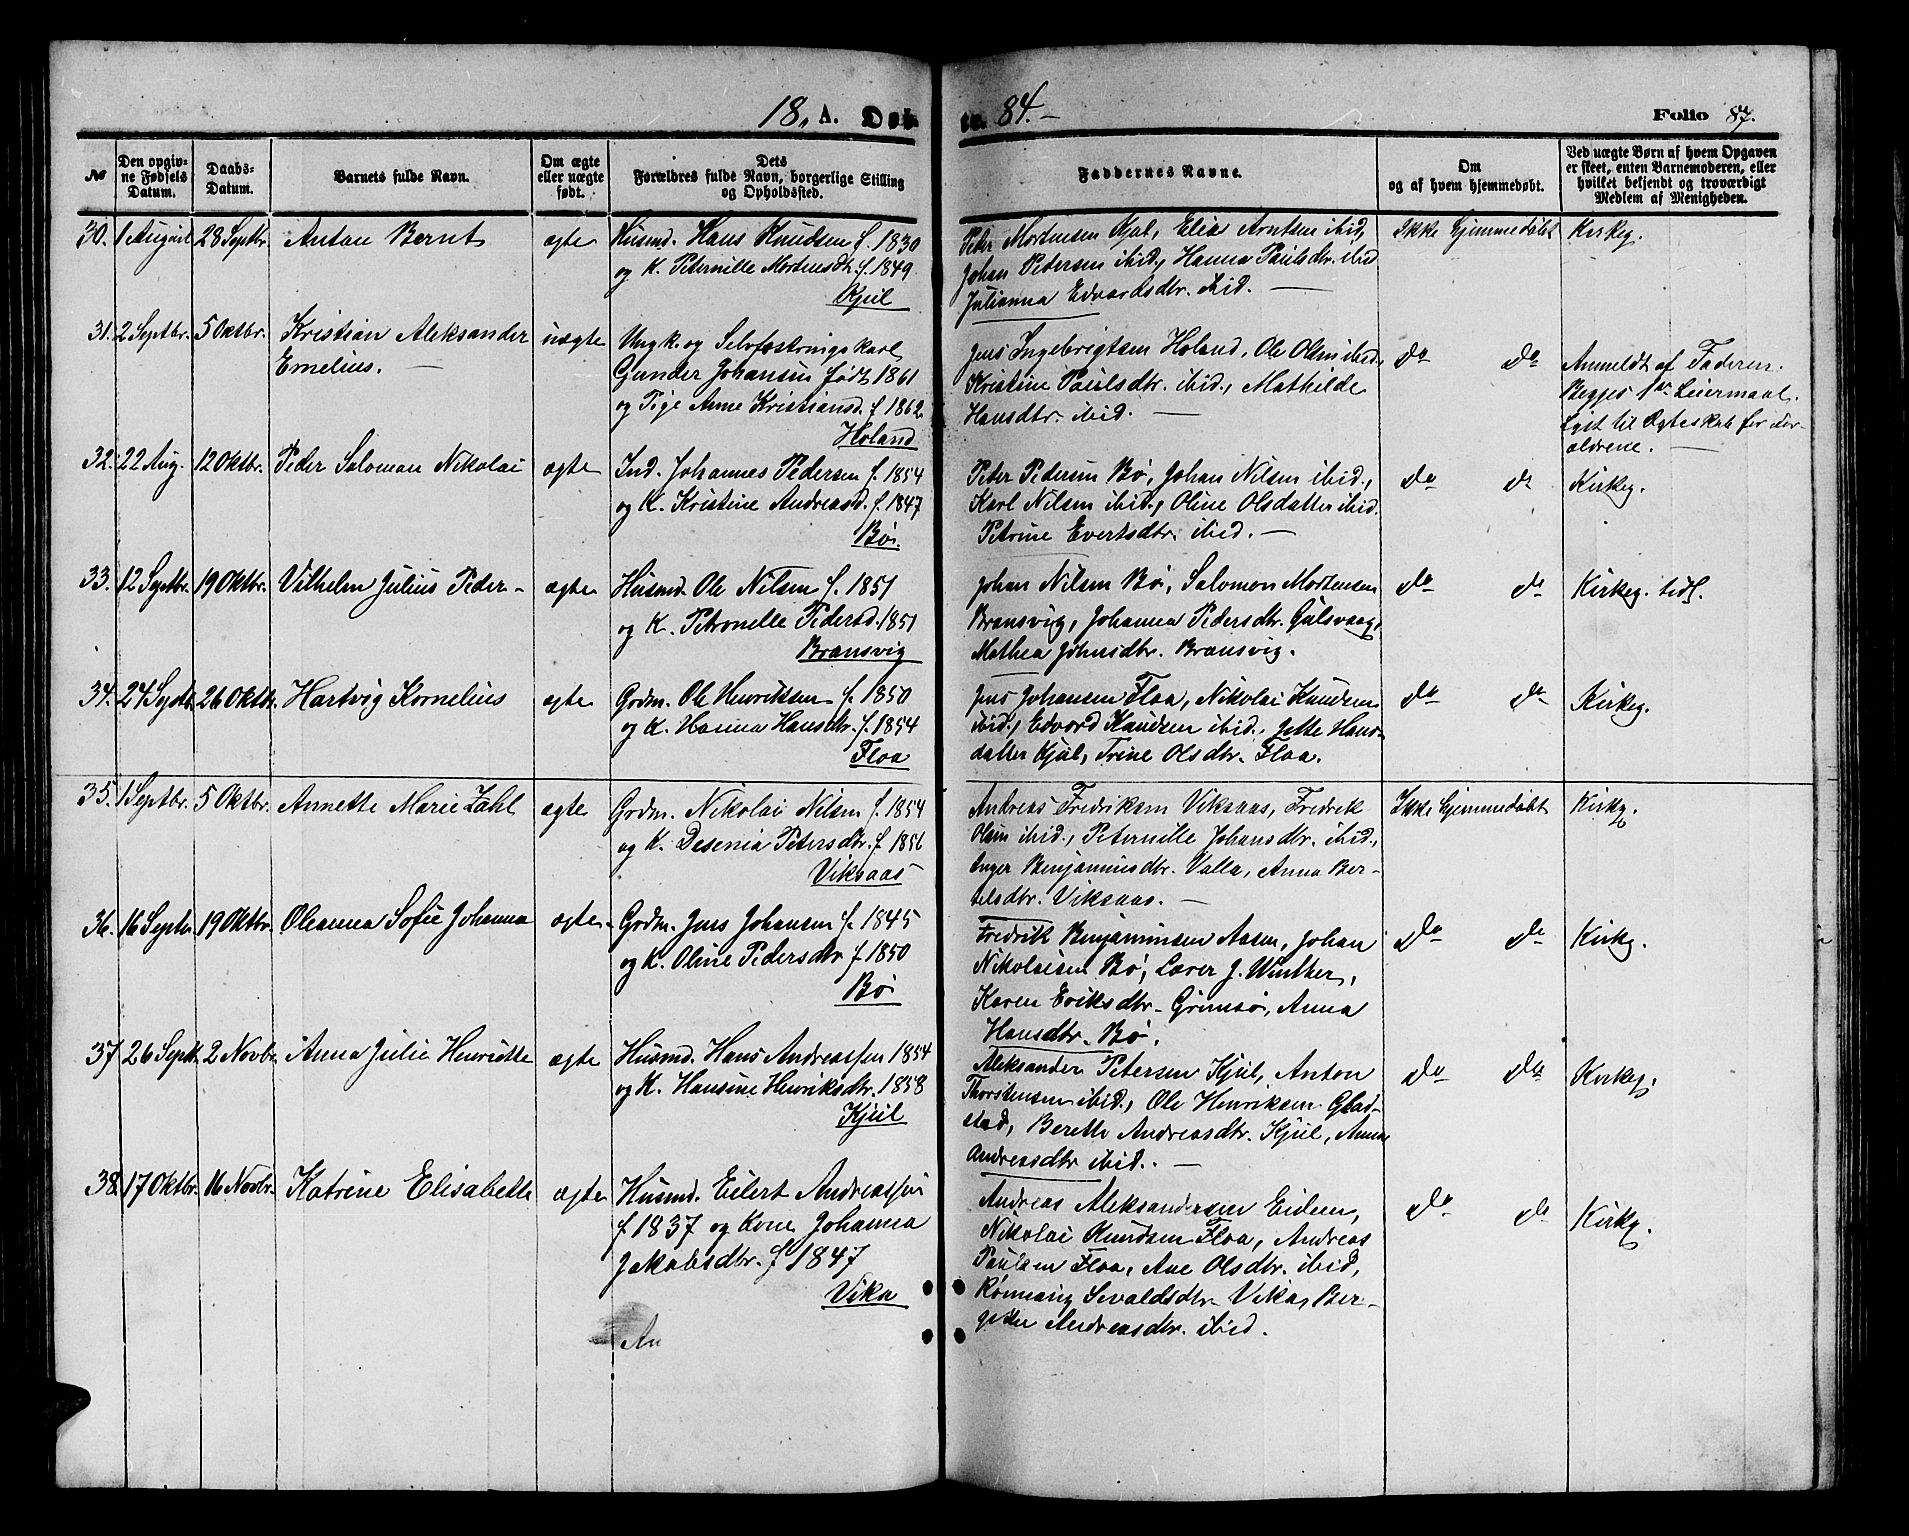 18, A. Døb
te. 84.-
Folio 87.
No
Den opgiv-
ne Fødsels
Datum.
Daabs-
Datum.
Barnets fulde Navn.
Om ægte
eller uægte
født.
Dets
Forældres fulde Navn, borgerlige Stilling
og Opholdssted.
Faddernes Navne.
Om
og af hvem hjemmedøbt.
Ved uægte Børn af hvem Opgaven
er skeet, enten Barnemoderen, eller
hvilket bekjendt og troværdigt
Medlem af Menigheden.
30. 1 August 28 Septbr. Anton Bernt ægte Husmd. Hans Knudsen f. 1830
og K. Peternille Mortensdt. f. 1849
Kjul
Peder Mortensen Kjul, Elia Arntsen ibid,
Johan Pedersen ibid., Hanna Paulsdtr. ibid
Julianna Edvardsdtr. ibid. —
Ikke hjemmedøbt Kirkeg.
31. 2 Septbr. 5 Oktbr. Kristian Aleksander uægte Ungk. og Selvfostringskarl
Emelius. — Gunder Johansen født 1861
og Pige Anne Kristiansd. f 1862.
Holand
Jens Ingebrigtsen Holand, Ole Olsen ibid.,
Kristine Paulsdtr. ibid., Mathilde
Hansdtr. ibid. —
do do Anmeldt af Faderen.
Begges 1ste Leiermaal.
Lyst til Ægteskab for For-
ældrene. —
32. 22 Aug. 12 Oktbr. Peder Saloman Nikolai ægte Ind. Johannes Pedersen f. 1854
og K. Kristine Andreasd. f. 1847
Bø.
Peter Pedersen Bø, Johan Nilsen ibid.,
Karl Nilsen ibid., Oline Olsdatter ibid.
Petrine Evertsdtr. ibid. —
do do Kirkeg.
33. 12 Septbr. 19 Oktbr. Vilhelm Julius Peder - ægte Husmd. Ole Nilsen f. 1851
og K. Petronelle Pedersd. 1851
Bransvig
Johan Nilsen Bø, Salomon Mortensen
Bransvig, Johanna Pedersdtr. Gulsvaag,
Mathea Johnsdtr. Bransvig.
do do Kirkeg. tidl.
34. 24 Septb. 26 Oktbr. Hartvig Kornelius ægte Grdm. Ole Henriksen f. 1850
og K. Hanna Hansdtr. f. 1854
Floa
Jens Johansen Floa, Nikolai Knudsen
ibid., Edvard Knudsen ibid., Jette Hans-
datter Kjul, Trine Olsdtr. Floa.
do do Kirkeg.
35. 1 Septbr. 5 Oktbr. Annette Marie Zahl ægte Grdm. Nikolai Nilsen f. 1854
og K. Desenia Petersdtr. f 1856
Viksaas
Andreas Fredriksen Viksaas, Fredrik
Olsen ibid., Peternille Johansdtr. ibid.,
Inger Benjaminsdtr. Valla, Anna Ber-
telsdtr. Viksaas. —
Ikke hjemmedøbt Kirkg.
36. 16 Septbr. 19 Oktbr. Oleanna Sofie Johanna ægte. Grdm. Jens Johansen f. 1845
og K. Oline Pedersdtr f 1850
Bø
Fredrik Benjaminsen Aasen, Johan
Nikolaisen Bø, Lærer J. Winther,
Karen Eriksdtr. Grimsø, Anna
Hansdtr. Bø.
do do Kirkg.
37. 26 Septb. 2 Novbr. Anna Julie Henriette ægte Husmd. Hans Andreassen 1854
og K. Hansine Henriksdtr. 1858
Kjul
Aleksander Petersen Kjul, Anton
Thorstensen ibid., Ole Henriksen Glad-
stad, Berette Andreasdtr. Kjul, Anna
Andreasdtr ibid. —
do do Kirkeg.
38. 17 Oktbr. 16 Novbr. Katrine Elisabeth ægte Husmd. Eilert Andreassen
f 1837 og Kone Johanna
Jakobsdtr. f 1847
Vika
Andreas Aleksandersen Eidem,
Nikolai Knudsen Floa, Andreas
Paulsen Floa, Ane Olsdtr. ibid,
Rønnaug Sevaldsdtr. Vika, Ber-
gitte Andreasdtr. ibid.
do do Kirkg.
An